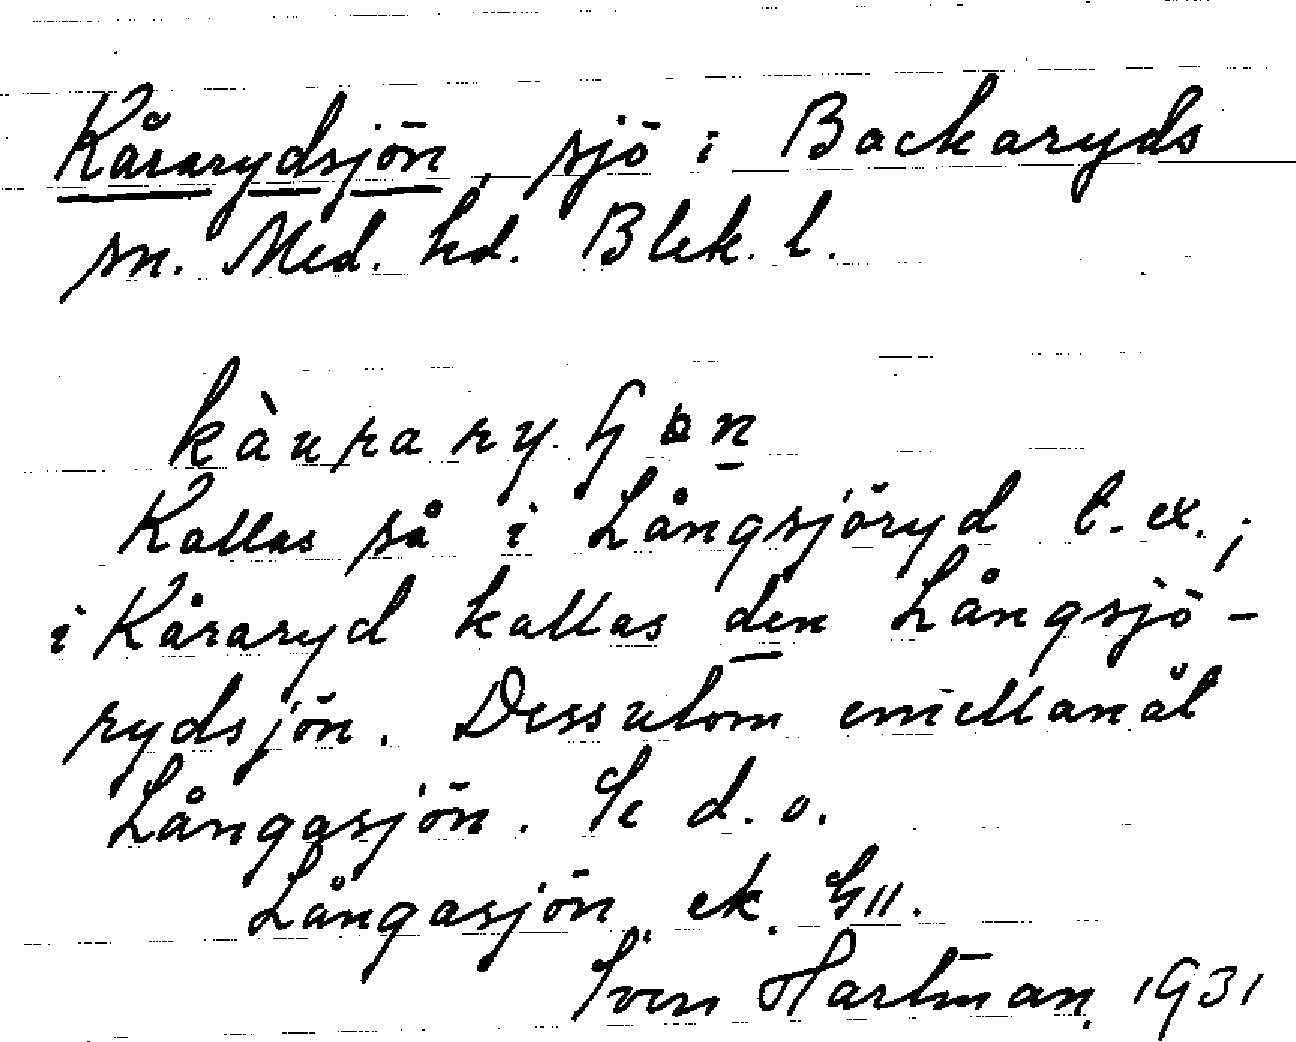 Kårarydsjön, sjö i Backaryds
sn. Med. hd. Blek. l.
Kallas så i Långsjöryd t. ex.;
i Kåraryd kallas den Långsjö-
rydsjön. Dessutom emellanåt
Långasjön. Se d. o.
Långasjön ek.
Sven Hartman. 1931